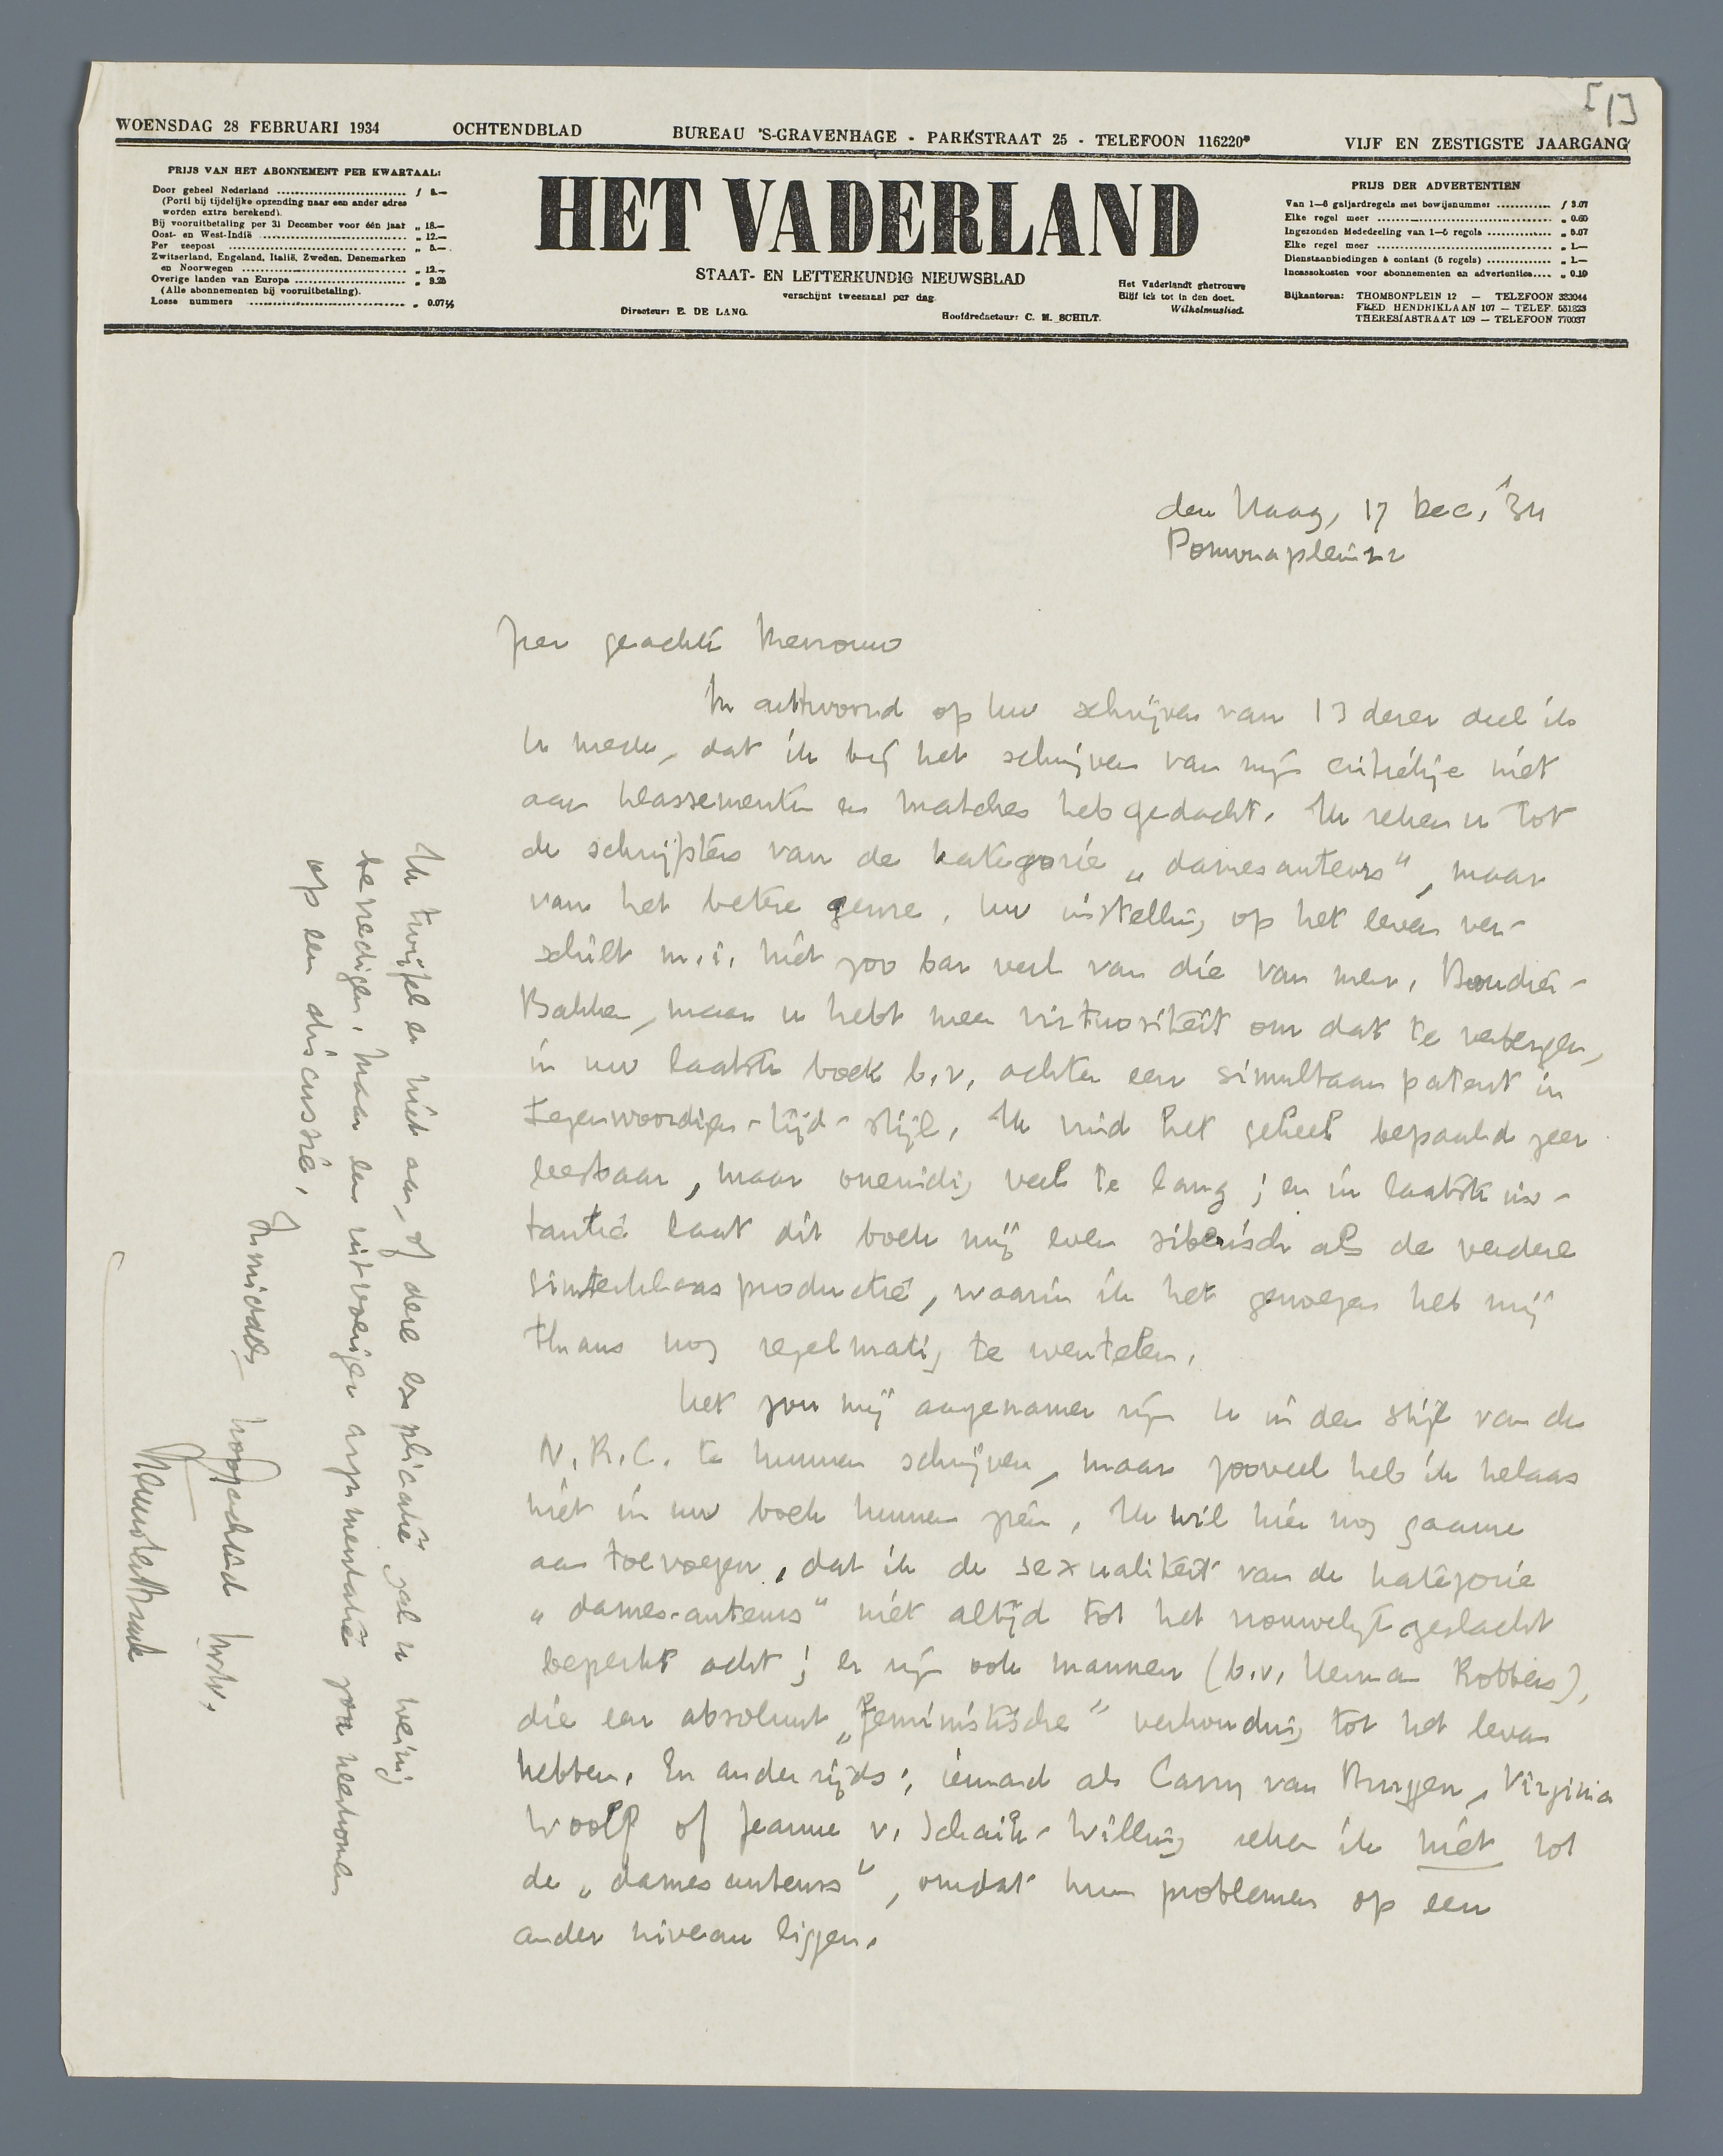 [1]
WOENSDAG 28 FEBRUARI 1934 OCHTENDBLAD BUREAU 'S-GRAVENHAGE - PARKSTRAAT 25 - TELEFOON 116220* VIJF EN ZESTIGSTE JAARGANG
PRIJS VAN HET ABONNEMENT PER KWARTAAL:
Door geheel Nederland ............ f 5.—
(Porti bij tijdelijke opzending naar een ander adres
worden extra berekend).
Bij vooruitbetaling per 31 December voor één jaar „ 18.—
Oost- en West-Indië ............ „ 12.—
Per zeepost ............ „ 5.—
Zwitserland, Engeland, Italië, Zweden, Denemarken
en Noorwegen ............ „ 12.—
Overige landen van Europa ............ „ 9.25
(Alle abonnementen bij vooruitbetaling).
Losse nummers ............ „ 0.07½
HET VADERLAND
STAAT- EN LETTERKUNDIG NIEUWSBLAD
verschijnt tweemaal per dag
Directeur: E. DE LANG.
Hoofdredacteur: C. M. SCHILT.
Het Vaderlandt ghetrouwe
Blijf ick tot in den doet.
Wilhelmuslied.
PRIJS DER ADVERTENTIËN
Van 1—6 galjardregels met bewijsnummer ............ f 3.07
Elke regel meer ............ „ 0.60
Ingezonden Mededeeling van 1—5 regels ............ „ 5.07
Elke regel meer ............ „ 1.—
Dienstaanbiedingen à contant (5 regels) ............ „ 1.—
Incassokosten voor abonnementen en advertenties.... „ 0.10
Bijkantoren: THOMSONPLEIN 12 — TELEFOON 333044
FRED. HENDRIKLAAN 107 — TELEF. 551823
THERESIASTRAAT 109 — TELEFOON 770037
den Haag, 17 Dec. '34
Pomonaplein 22
Zeer geachte Mevrouw
In antwoord op Uw schrijven van 13 dezer deel ik
U mede, dat ik bij het schrijven van mijn critiekje niet
aan klassementen en matches heb gedacht. Ik reken u tot
de schrijfsters van de kategorie „damesauteurs", maar
van het betere genre. Uw instelling op het leven ver-
schilt m.i. niet zoo bar veel van die van mevr. Boudier-
Bakker, maar u hebt meer virtuositeit om dat te verbergen,
in uw laatste boek b.v. achter een simultaan patent in
tegenwoordigen-tijd-stijl. Ik vind het geheel bepaald zeer
leesbaar, maar onzinnig veel te lang; en in laatste ins-
tantie laat dit boek mij even siberisch als de verdere
sinterklaasproductie, waarin ik het genoegen heb mij
thans nog regelmatig te wentelen.
Het zou mij aangenamer zijn U in den stijl van de
N.R.C. te kunnen schrijven, maar zooveel heb ik helaas
niet in uw boek kunnen zien. Ik wil hier nog gaarne
aan toevoegen, dat ik de sexualiteit van de kategorie
„dames-auteurs" niet altijd tot het vrouwelijk geslacht
beperkt acht; er zijn ook mannen (b.v. Herman Robbers),
die een absoluut „feministische" verhouding tot het leven
hebben. En anderzijds; iemand als Carry van Bruggen, Virginia
Woolf of Jeanne v. Schaik-Willing reken ik niet tot
de „damesauteurs", omdat hun problemen op een
ander niveau liggen.
Ik twijfel er niet aan, of deze explicatie zal u weinig
bevredigen. Maar een uitvoeriger argumentatie zou neerkomen
op een discussie.
Inmiddels hoogachtend
Menno ter Braak